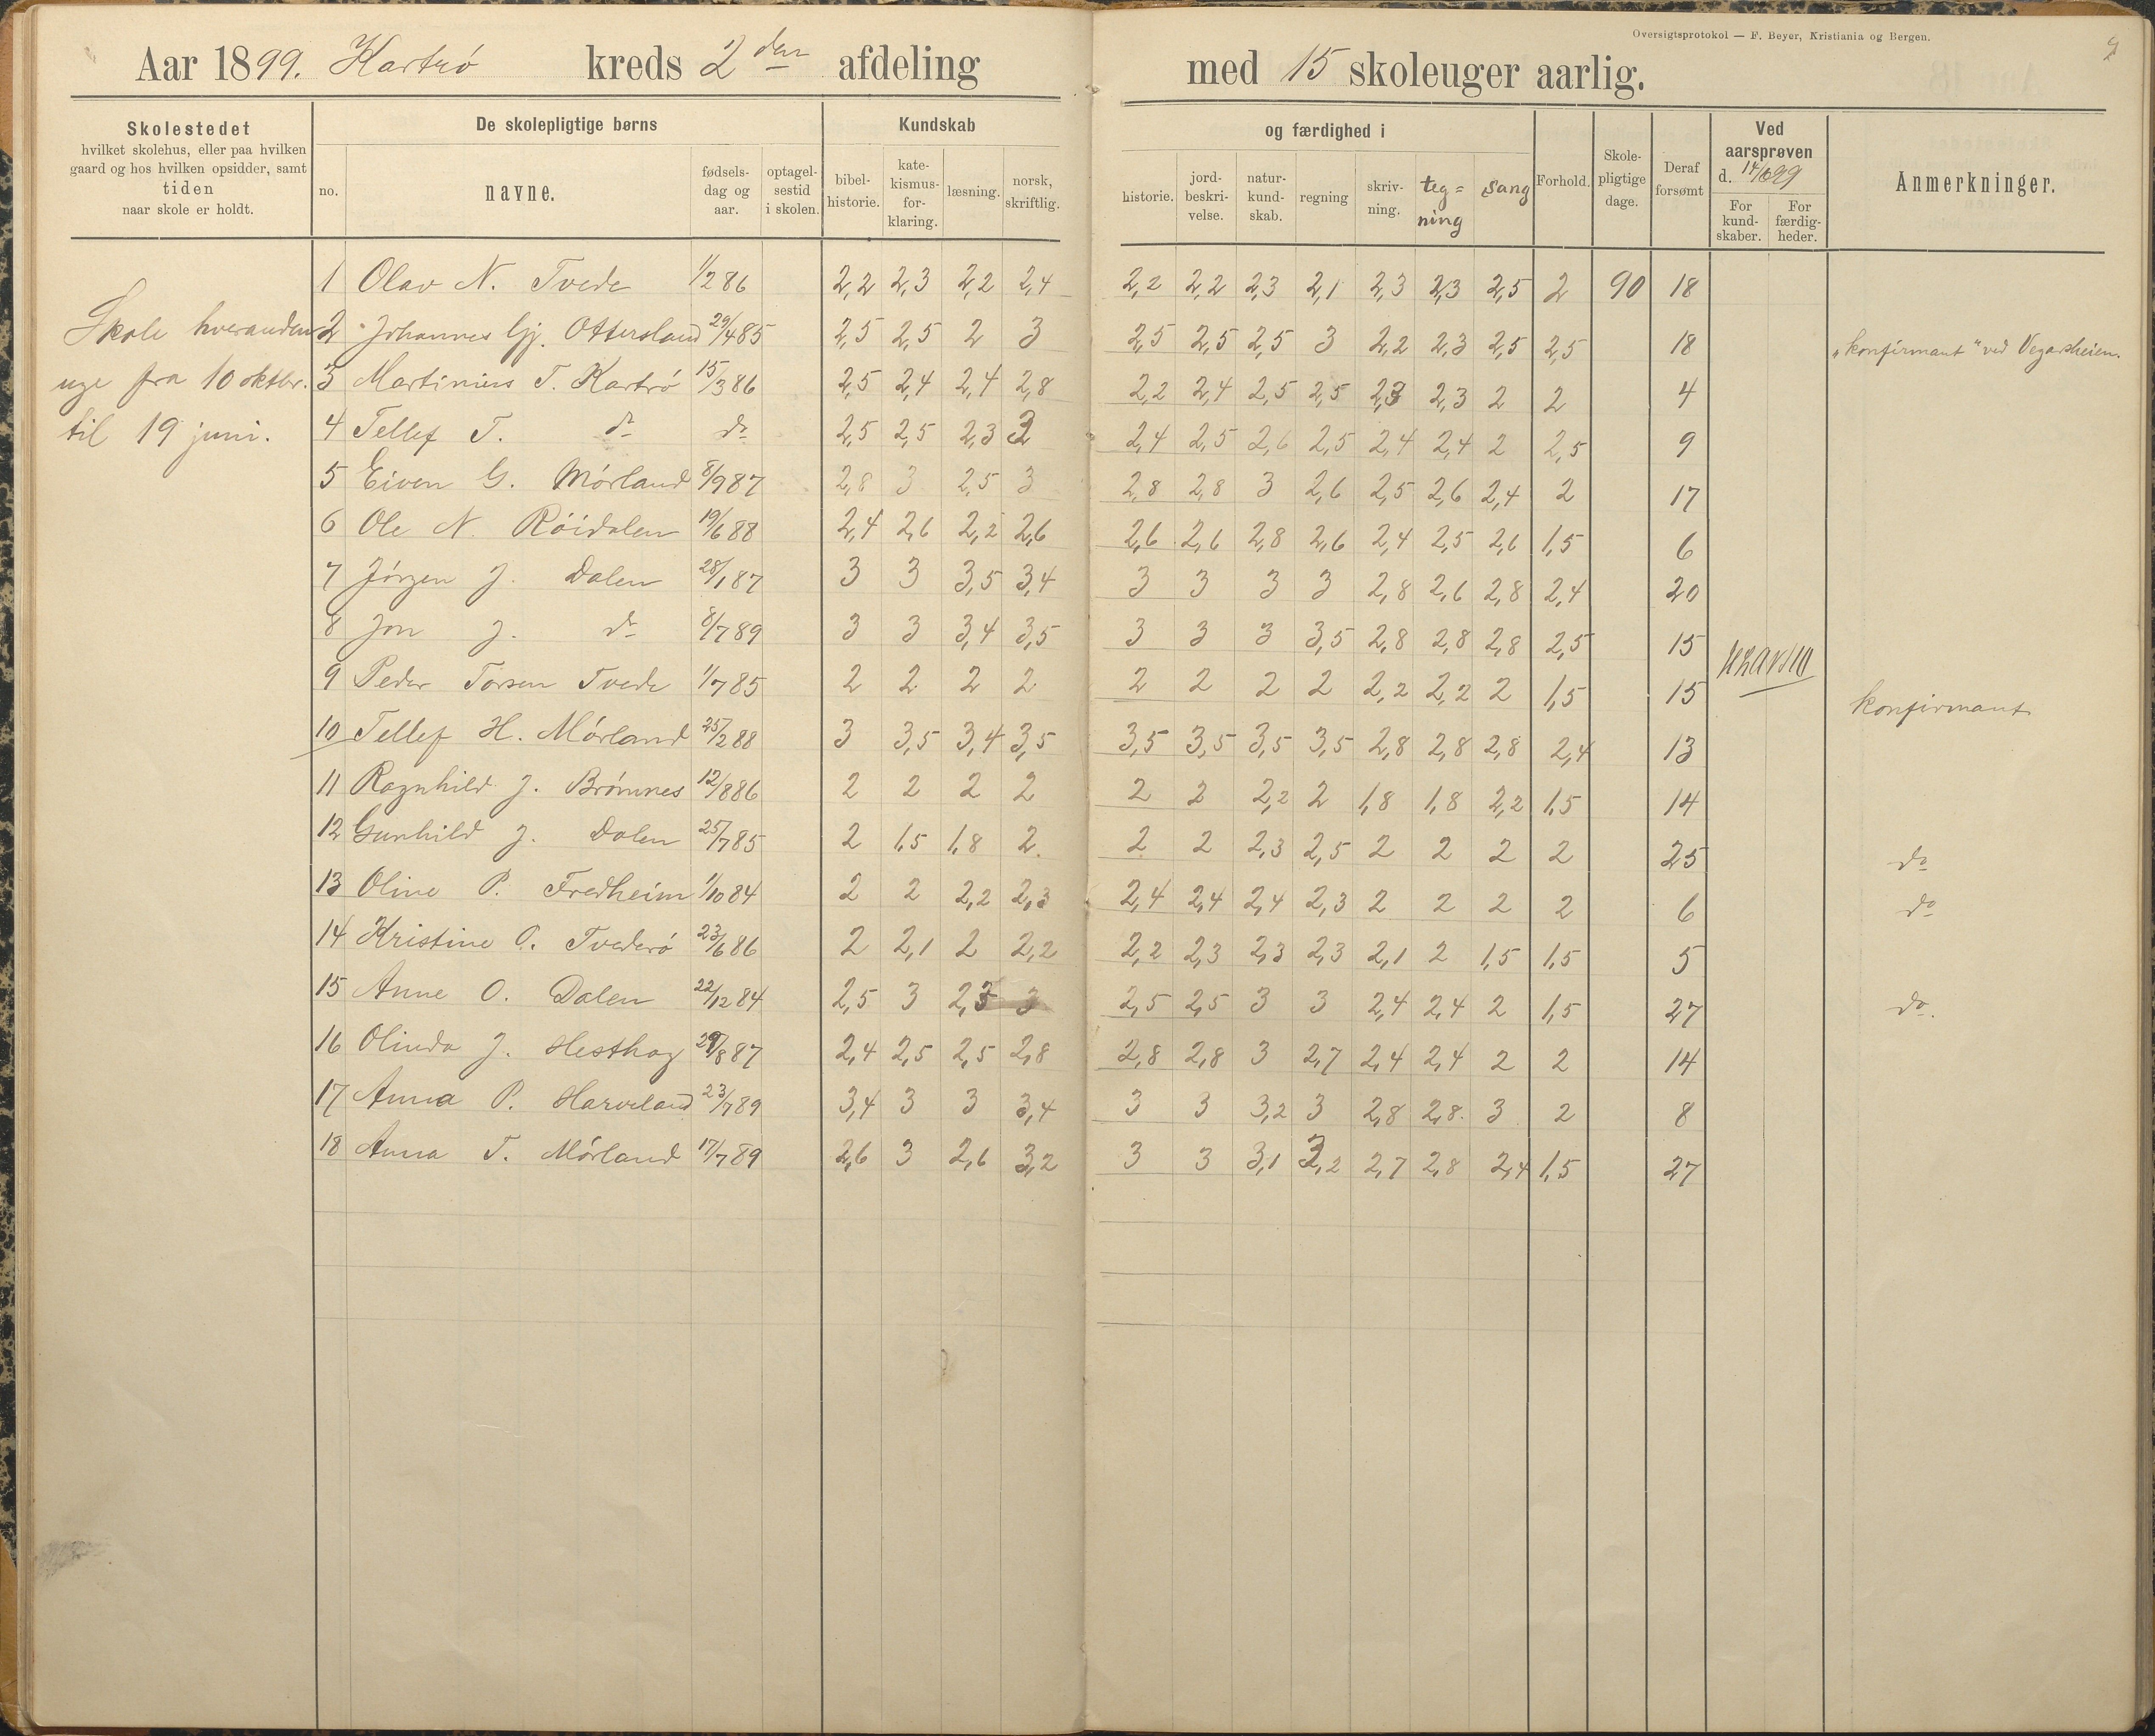 Oversigtsprotokol — F. Beyer, Kristiania og Bergen.
Aar 1899. Kartrø kreds 2den afdeling med 15 skoleuger aarlig.
Skolestedet
hvilket skolehus, eller paa hvilken
gaard og hos hvilken opsidder, samt
tiden
naar skole er holdt.
De skolepligtige børns
no. navne. fødsels-dag og aar. optagel-sestid i skolen.
Kundskab og færdighed i
bibel-historie. kate-kismus-for-klaring. læsning. norsk, skriftlig. historie. jord-beskri-velse. natur-kund-skab. regning skriv-ning. teg=ning Sang
Forhold. Skole-pligtige dage. Deraf forsømt
Ved aarsprøven d. 14/6 99
For kund-skaber. For færdig-heder.
Anmerkninger.
Skole hveranden
uge fra 10 oktbr.
til 19 juni.
1 Olav N. Tvede 1/2 86 2,2 2,3 2,2 2,4 2,2 2,2 2,3 2,1 2,3 2,3 2,5 2 90 18
2 Johannes Gj. Ottersland 29/4 85 2,5 2,5 2 3 2,5 2,5 2,5 3 2,2 2,3 2,5 2,5 18 "konfirmant" ved Vegarsheien.
3 Martinius T. Kartrø 15/3 86 2,5 2,4 2,4 2,8 2,2 2,4 2,5 2,5 2,3 2,3 2 2 4
4 Tellef T. do do 2,5 2,5 2,3 3 2,4 2,5 2,6 2,5 2,4 2,4 2 2,5 9
5 Eiven G. Mørland 8/9 87 2,8 3 2,5 3 2,8 2,8 3 2,6 2,5 2,6 2,4 2 17
6 Ole N. Röidalen 19/6 88 2,4 2,6 2,2 2,6 2,6 2,6 2,8 2,6 2,4 2,5 2,6 1,5 6
7 Jørgen J. Dalen 28/1 87 3 3 3,5 3,4 3 3 3 3 2,8 2,6 2,8 2,4 20
8 Jon J. do 8/7 89 3 3 3,4 3,5 3 3 3 3,5 2,8 2,8 2,8 2,5 15
9 Peder Torsen Tvede 1/7 85 2 2 2 2 2 2 2 2 2,2 2,2 2 1,5 15 konfirmant
10 Tellef H. Mørland 25/2 88 3 3,5 3,4 3,5 3,5 3,5 3,5 3,5 2,8 2,8 2,8 2,4 13
11 Ragnhild J. Brømnes 12/8 86 2 2 2 2 2 2 2,2 2 1,8 1,8 2,2 1,5 14
12 Gunhild J. Dalen 25/7 85 2 1,5 1,8 2 2 2 2,3 2,5 2 2 2 2 25 do
13 Oline P. Fredheim 1/10 84 2 2 2,2 2,3 2,4 2,4 2,4 2,3 2 2 2 2 6 do
14 Kristine O. Tvederø 23/6 86 2 2,1 2 2,2 2,2 2,3 2,3 2,3 2,1 2 1,5 1,5 5
15 Anne O. Dalen 22/12 84 2,5 3 2,3 3 2,5 2,5 3 3 2,4 2,4 2 1,5 27 do.
16 Olinda J. Hesthag 29/8 87 2,4 2,5 2,5 2,8 2,8 2,8 3 2,7 2,4 2,4 2 2 14
17 Anna P. Harveland 23/7 89 3,4 3 3 3,4 3 3 3,2 3 2,8 2,8 3 2 8
18 Anna T. Mørland 17/7 89 2,6 3 2,6 3,2 3 3 3,1 3,2 2,7 2,8 2,4 1,5 27